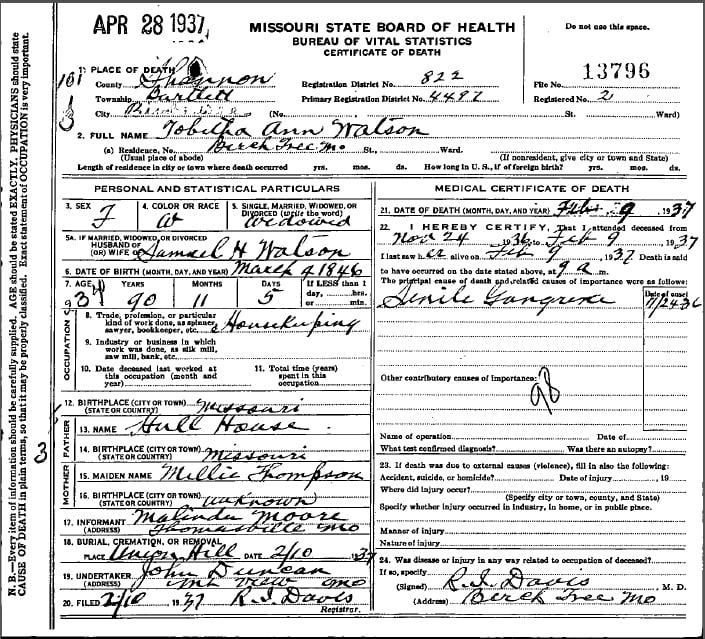 APR 28 1937
MISSOURI STATE BOARD OF HEALTH
BUREAU OF VITAL STATISTICS
CERTIFICATE OF DEATH
Do not use this space.
1. PLACE OF DEATH
County Shannon
Township Bartlett
City
(No. St., Ward)
Registration District No. 822
Primary Registration District No. 4487
File No. 13796
Registered No. 2
2. FULL NAME Tobitha Ann Watson
(a) Residence, No. Birch Tree Mo St., Ward.
(Usual place of abode) (If nonresident, give city or town and State)
Length of residence in city or town where death occurred yrs. mos. ds. How long in U.S., if of foreign birth? yrs. mos. ds.
PERSONAL AND STATISTICAL PARTICULARS
3. SEX F
4. COLOR OR RACE W
5. SINGLE, MARRIED, WIDOWED, OR DIVORCED (write the word) Widowed
5A. IF MARRIED, WIDOWED, OR DIVORCED
HUSBAND OF
(OR) WIFE OF Samuel H Watson
6. DATE OF BIRTH (MONTH, DAY, AND YEAR) March 4 1846
7. AGE YEARS MONTHS DAYS If LESS than 1
90 11 5 day, hrs.
or min.
OCCUPATION
8. Trade, profession, or particular
kind of work done, as spinner,
sawyer, bookkeeper, etc. Housekeeping
9. Industry or business in which
work was done, as silk mill,
saw mill, bank, etc.
10. Date deceased last worked at
this occupation (month and
year)
11. Total time (years)
spent in this
occupation
12. BIRTHPLACE (CITY OR TOWN) Missouri
(STATE OR COUNTRY)
FATHER
13. NAME Hull House
14. BIRTHPLACE (CITY OR TOWN) Missouri
(STATE OR COUNTRY)
MOTHER
15. MAIDEN NAME Millie Thompson
16. BIRTHPLACE (CITY OR TOWN) unknown
(STATE OR COUNTRY)
17. INFORMANT Malinda Moore
(ADDRESS) Thomasville Mo
18. BURIAL, CREMATION, OR REMOVAL
PLACE Union Hill DATE 2/10 1937
19. UNDERTAKER John Duncan
(ADDRESS) Mt View Mo
20. FILED 2/10, 1937 R. I. Davis
Registrar.
MEDICAL CERTIFICATE OF DEATH
21. DATE OF DEATH (MONTH, DAY, AND YEAR) Feb 9 1937
22. I HEREBY CERTIFY, That I attended deceased from
Nov 24 1936, to Feb 9, 1937
I last saw her alive on Feb 9, 1937 Death is said
to have occurred on the date stated above, at 9 a m.
The principal cause of death and related causes of importance were as follows:
Senile Gangrene
Date of onset
11/24 36
Other contributory causes of importance:
98
Name of operation Date of
What test confirmed diagnosis? Was there an autopsy?
23. If death was due to external causes (violence), fill in also the following:
Accident, suicide, or homicide? Date of injury , 19
Where did injury occur?
(Specify city or town, county, and State)
Specify whether injury occurred in Industry, in home, or in public place.
Manner of injury
Nature of injury
24. Was disease or injury in any way related to occupation of deceased?
If so, specify
(Signed) R. I. Davis, M. D.
(Address) Birch Tree Mo
N. B.—Every item of information should be carefully supplied. AGE should be stated EXACTLY. PHYSICIANS should state
CAUSE OF DEATH in plain terms, so that it may be properly classified. Exact statement of OCCUPATION is very important.
3